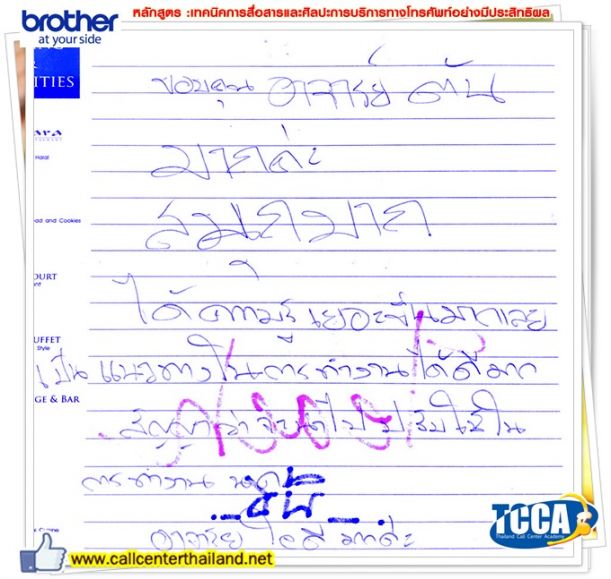 brother
at your side
หลักสูตร :เทคนิคการสื่อสารและศิลปะการบริการทางโทรศัพท์อย่างมีประสิทธิผล
ITIES
ขอบคุณ อาจารย์ ตัน
มากค่ะ
สนุกมาก
Halal
and Cookies
OURT
ได้ความรู้เยอะขึ้นมากเลย
UFFET
Style
เป็นแนวทางในการทำงานได้ดีมาก
GE & BAR
สัญญาว่าจะนำไปปรับใช้ใน
การทำงาน
อาจารย์ ใจดี มากค่ะ
Cuisine
TCCA
Thailand Call Center Academy
www.callcenterthailand.net